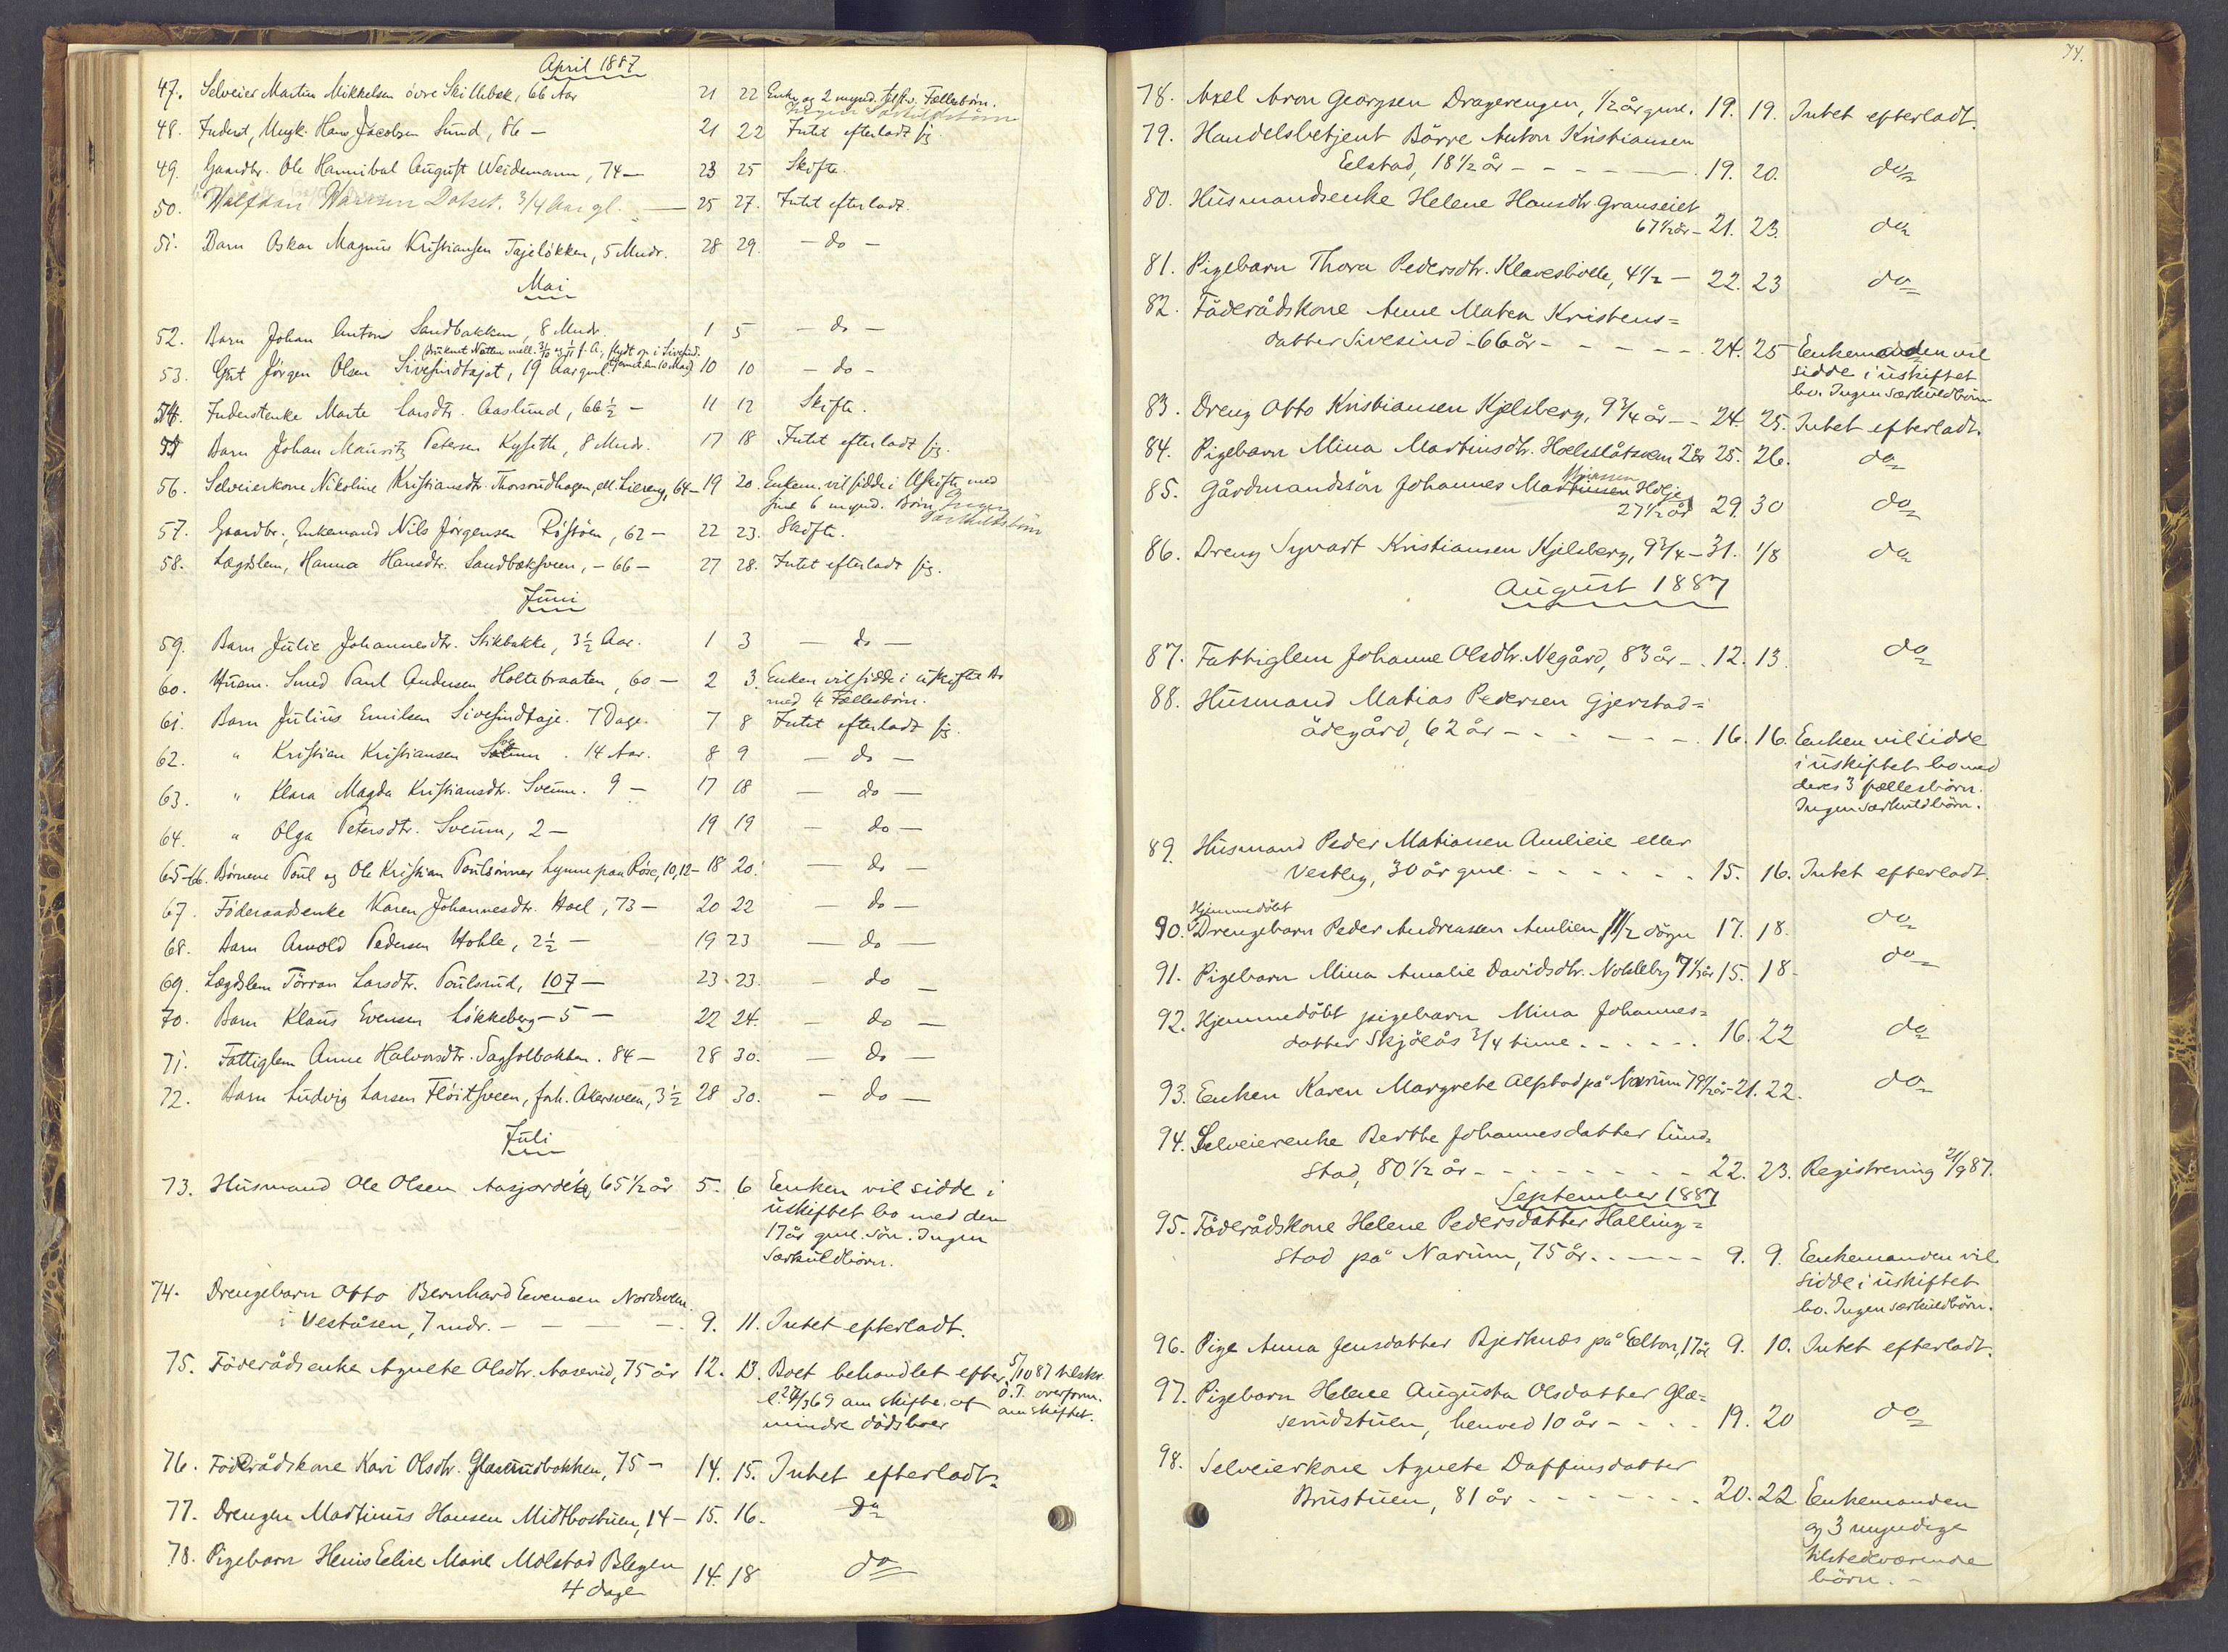 April 1887
47. Selveier Martin Mikkelsen övre Skillebek, 66 Aar 21 22 Enke og 2 mynd. Fællesbörn.
Ingen Særkuldsbörn
48. Inderst, Ungk. Hans Jacobsen Lund, 86 — 21 22 Intet efterladt sig.
49. Gaardbr. Ole Hannibal August Weidemann, 74 — 23 25 Skifte.
50. Halfdan Dalset. 3/4 Aar gl. — 25 27. Intet efterladt.
51. Barn Oskar Magnus Kristiansen Tajelökken, 5 Mndr. 28 29. — do —
Mai
52. Barn Johan Anton Sandbakken, 8 Mndr. 1 5 — do —
53. Gut Jörgen Olsen Sivesindtajet, 19 Aar gml. 10 10 — do —
54. Inderstenke Marte Larsdtr. Aaslund, 66 1/2 — 11 12 Skifte.
55 Barn Johan Mauritz Petersen Kyseth, 8 Mndr. 17 18 Intet efterladt sig.
56. Selveierkone Nikoline Kristiansdtr. Thorsrudhagen, ell. Liereng, 64 — 19 20. Enkem. vil sidde i Uskifte med
sine 6 mynd. Börn. Ingen
Særkuldsbörn
57. Gaardbr., Enkemand Nils Jörgensen Röstöen, 62 — 22 23. Skifte.
58. Lægdslem, Hanna Hansdtr. Sandbæksveen, — 66 — 27 28. Intet efterladt sig.
Juni
59. Barn Julie Johannesdtr. Stikbakke, 3 1/2 Aar. 1 3 — do —
60. Husm. Smed Paul Andersen Holtebraaten, 60 — 2 3. Enken vil sidde i uskifte Bo
med 4 Fællesbörn.
61. Barn Julius Emilsen Sivesindtaje. 7 Dage. 7 8 Intet efterladt sig.
62. " Kristian Kristiansen 14 Aar. 8 9 — do —
63. " Klara Magda Kristiansdtr. Sveum. 9 — 17 18 — do —
64. " Olga Petersdtr. Sveum, 2 — 19 19 — do —
65-66. Börnene Paul og Ole Kristian Paulsönner Lynne paa Röse, 10, 12 — 18 20. — do —
67. Föderaadsenke Karen Johannesdtr. Hoel, 73 — 20 22 — do —
68. Barn Arnold Pedersen Hohle, 2 1/2 — 19 23 — do —
69. Lægdslem Törran Larsdtr. Paulsrud, 107 — 23. 23. — do —
70. Barn Klaus Evensen Lökkeberg — 5 — 22 24. — do —
71. Fattiglem Anne Halvorsdtr. Sagsolbakken. 84 — 28 30. — do —
72. Barn Ludvig Larsen Flöitsveen, forh. Akersveen, 3 1/2 28 30. — do —
Juli
73. Husmand Ole Olsen Aasjordet, 65 1/2 år 5. 6 Enken vil sidde i
uskiftet bo med den
17 år gml. sön. Ingen
særkuldbörn.
74. Drengebarn Otto Bernhard Evensen Nordsveen
i Veståsen, 7 mdr. — — — — 9. 11. Intet efterladt.
75. Föderådsenke Agnete Olsdtr. Aaserud, 75 år 12. 13. Boet behandlet efter 5/10 87 tilskr.
l. 24/3 69 om skifte af o.f. overform.
mindre dödsboer om skiftet.
76. Föderådskone Kari Olsdtr. Glæserudbakken, 75 — 14. 15. Intet efterladt.
77. Drengen Martinus Hansen Midtbostuen, 14 — 15. 16. Do
78. Pigebarn Elise Marie Molstad Blegen
4 dage 14. 18 do
74.
78. Axel Aron Georgsen Dragerengen, 1/2 år gml. 19. 19. Intet efterladt.
79. Handelsbetjent Börre Anton Kristiansen
Eelstad, 18 1/2 år — 19. 20. do
80. Husmandsenke Helene Hansdtr. Granseiet
67 1/2 år — 21. 23. do
81. Pigebarn Thora Pedersdtr. Klavesbölle, 4 1/2 — 22. 23 do
82. Föderådskone Anne Matea Kristens=
datter Sivesind - 66 år — 24. 25 Enkemanden vil
sidde i uskiftet
bo. Ingen særkuldbörn
83. Dreng Otto Kristiansen Kjelsberg, 9 3/4 år — 24. 25. Intet efterladt.
84. Pigebarn Mina Martinsdtr. Hoelsslåtsveen 2 år 25. 26. do
85. Gårdmandssön Johannes Martinsen Hölje
27 1/2 år 29. 30 do
86. Dreng Syvart Kristiansen Kjelsberg, 9 3/4 — 31. 1/8 do
August 1887
87. Fattiglem Johanne Olsdtr. Negård, 83 år — 12. 13. do
88. Husmand Matias Pedersen Gjerstad=
ödegård, 62 år — 16. 16. Enken vil sidde
i uskiftet bo med
deres 3 fællesbörn.
Ingen særkuldbörn.
89. Husmand Peder Matiassen Amlieie eller
Vestby, 30 år gml. — 15. 16. Intet efterladt.
Hjemmedöbt
90. Drengebarn Peder Andreassen Amlien 1/2 dögn 17. 18. do
91. Pigebarn Mina Amalie Davidsdtr. Nökleby 7 1/2 år 15. 18 do
92. Hjemmedöbt pigebarn Mina Johannes=
datter Skjölås 3/4 time . . . . . . 16. 22 do
93. Enken Karen Margrete Alfstad på Narum 79 1/2 år — 21. 22. do
94. Selveierenke Berthe Johannesdatter Lund=
stad, 80 1/2 år — 22. 23. Registrering 21/9 87.
September 1887
95. Föderådskone Helene Pedersdatter Halling=
stad på Narum, 75 år. — 9. 9. Enkemanden vil
sidde i uskiftet
bo. Ingen særkuldbörn.
96. Pige Anna Jensdatter Bjerknes på Eelton, 17 år 9. 10. Intet efterladt.
97. Pigebarn Helene Augusta Olsdatter Glæ=
serudstuen, henved 10 år — 19. 20 do
98. Selveierkone Agnete Daffinsdatter
Brustuen, 81 år — 20. 22 Enkemanden
og 3 myndige
tilstedeværende
börn. —